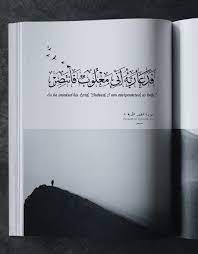 فَدَعَا رَبَّهُ أَنِّي مَغْلُوبٌ فَانتَصِرْ
So he invoked his Lord, "Indeed, I am overpowered, so help."
سورة القمر